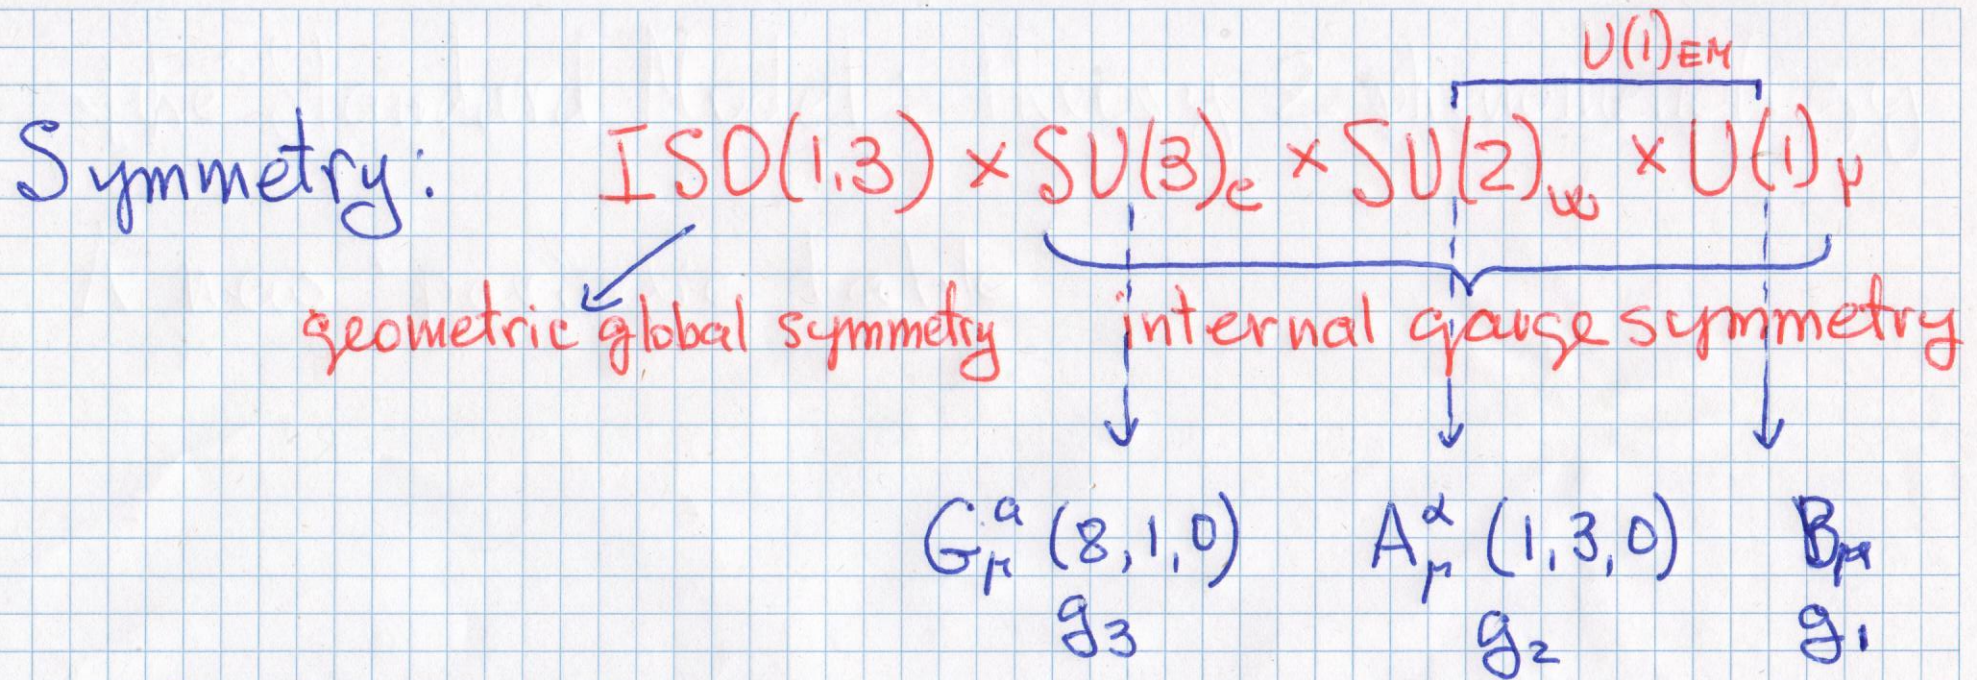 U(1)EM
Symmetry: ISO(1,3) × SU(3)c × SU(2)w × U(1)Y
geometric global symmetry internal gauge symmetry
G^a_μ (8,1,0) A^α_μ (1,3,0) B_μ
g3 g2 g1